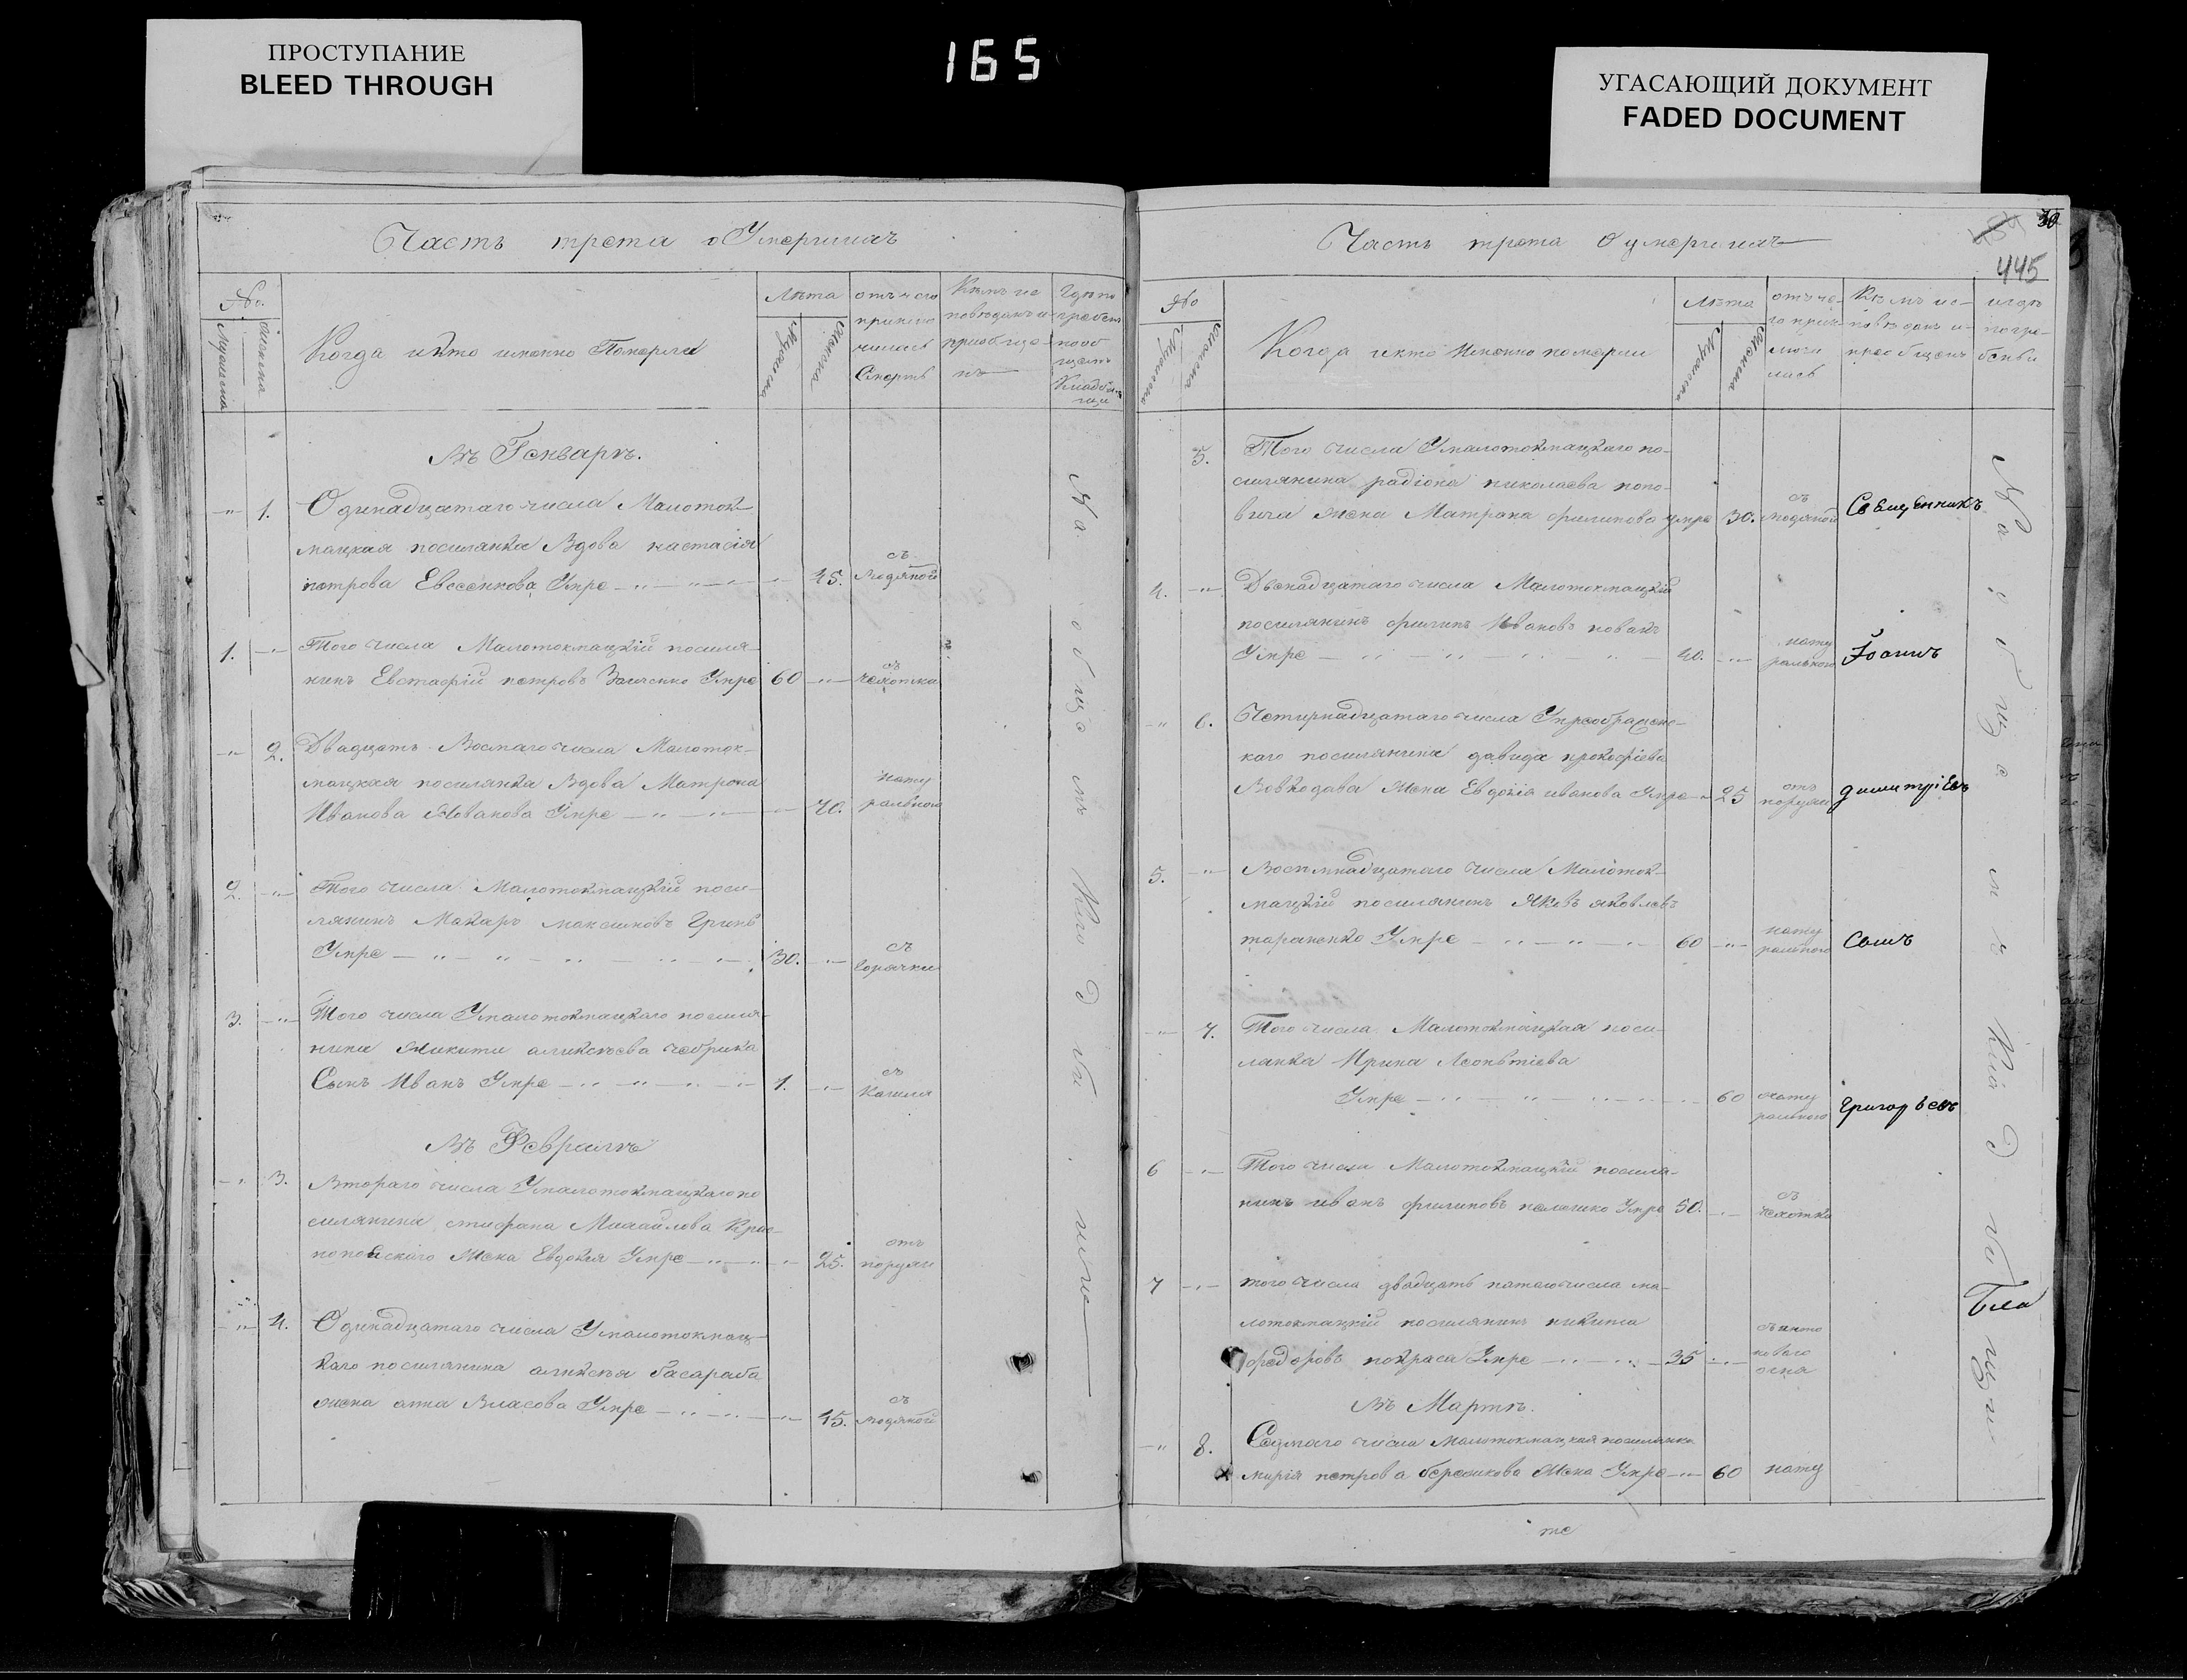 ПРОСТУПАНИЕ
BLEED THROUGH
165
УГАСАЮЩИЙ ДОКУМЕНТ
FADED DOCUMENT
Часть трета о Умершихъ
№.
Мужеска
Женска
Когда и кто именно Померли
Лѣта
Мужеска
Женска
отъ чего
приклю
чилась
Смерть
Кѣмъ ис
повѣданъ и
приобще-
нъ
Гдѣ по
гребенъ
на об
щемъ
Кладби
щи
Въ Генварѣ.
1. Одинадцатаго числа Малоток-
мацкая посилянка Вдова настасія
петрова Евсеенкова Умре 45. съ Модяной
1. Того числа Малотокмацкій посиля-
нинъ Евстафій петровъ Умре 60 съ чехотка
2. Двадцать Восмаго числа Малоток-
мацкая посилянка Вдова Матрона
Иванова Умре 70. нату рального
2. Того числа Малотокмацкій поси-
лянинъ Макаръ максимовъ Гринь
Умре 30. съ горячки
3. Того числа Умалотокмацкаго посиля-
нина Никити аликсѣева чебрика
Сынъ Иванъ Умре 1. съ Кашля
Въ Февралѣ
3. Втораго числа Умалотокмацкаго по
силянина стифана Михайлова Крас-
нопольского Жена Евдокия Умре 25. отъ поруги
4. Одинадцатаго числа Умалотокмац-
каго посилянина аликсѣя басараба
жена анна Власова Умре 45. съ модяной
На общемъ Кладбище
Часть трета О умершихъ
30
445
№
Мужеска
Женска
Когда и кто Именно померли
Лѣта
Мужеска
Женска
отъ че-
го прик-
лючи
лась
Кѣмъ ис-
повѣданъ и-
преобщенъ
и гдѣ
погре-
бенъи
5. Того числа Умалотокмацкаго по-
силянина радіона николаева попо-
вича жена Матрона филипова умре 30. съ модяной Священникъ
4. Двенадцатаго числа Малотокмацкій
посилянинъ филипъ Ивановъ
Умре 40. нату рального Іоаннъ
6. Четирнадцатаго числа Упреображенс-
каго посилянина давида прокофіева
Вовкодава Жена Евдокія иванова Умре 25 отъ поруги димитріевъ
5. Восимнадцатаго числа Малоток-
мацкій посилянинъ Яковъ яковлевъ
тараненко Умре 60 нату рального Самъ
7. Того числа Малотокмацкая поси-
лянка Ирина Леонътіева
Умре 60 нату рального Григорьевъ
6 Того числа Малотокмацкій посиля-
нинъ иванъ филиповъ Умре 50. съ чехотки
7 того числа двадцать пятаго числа ма-
лотокмацкій посилянинъ никита
федоровъ покраса Умре 35 съ анто нового огня
Въ Мартѣ.
8. Седмаго числа Малотокмацкая посилянка
мария петрова Жена Умре 60 нату
На общемъ Кладбищи
те